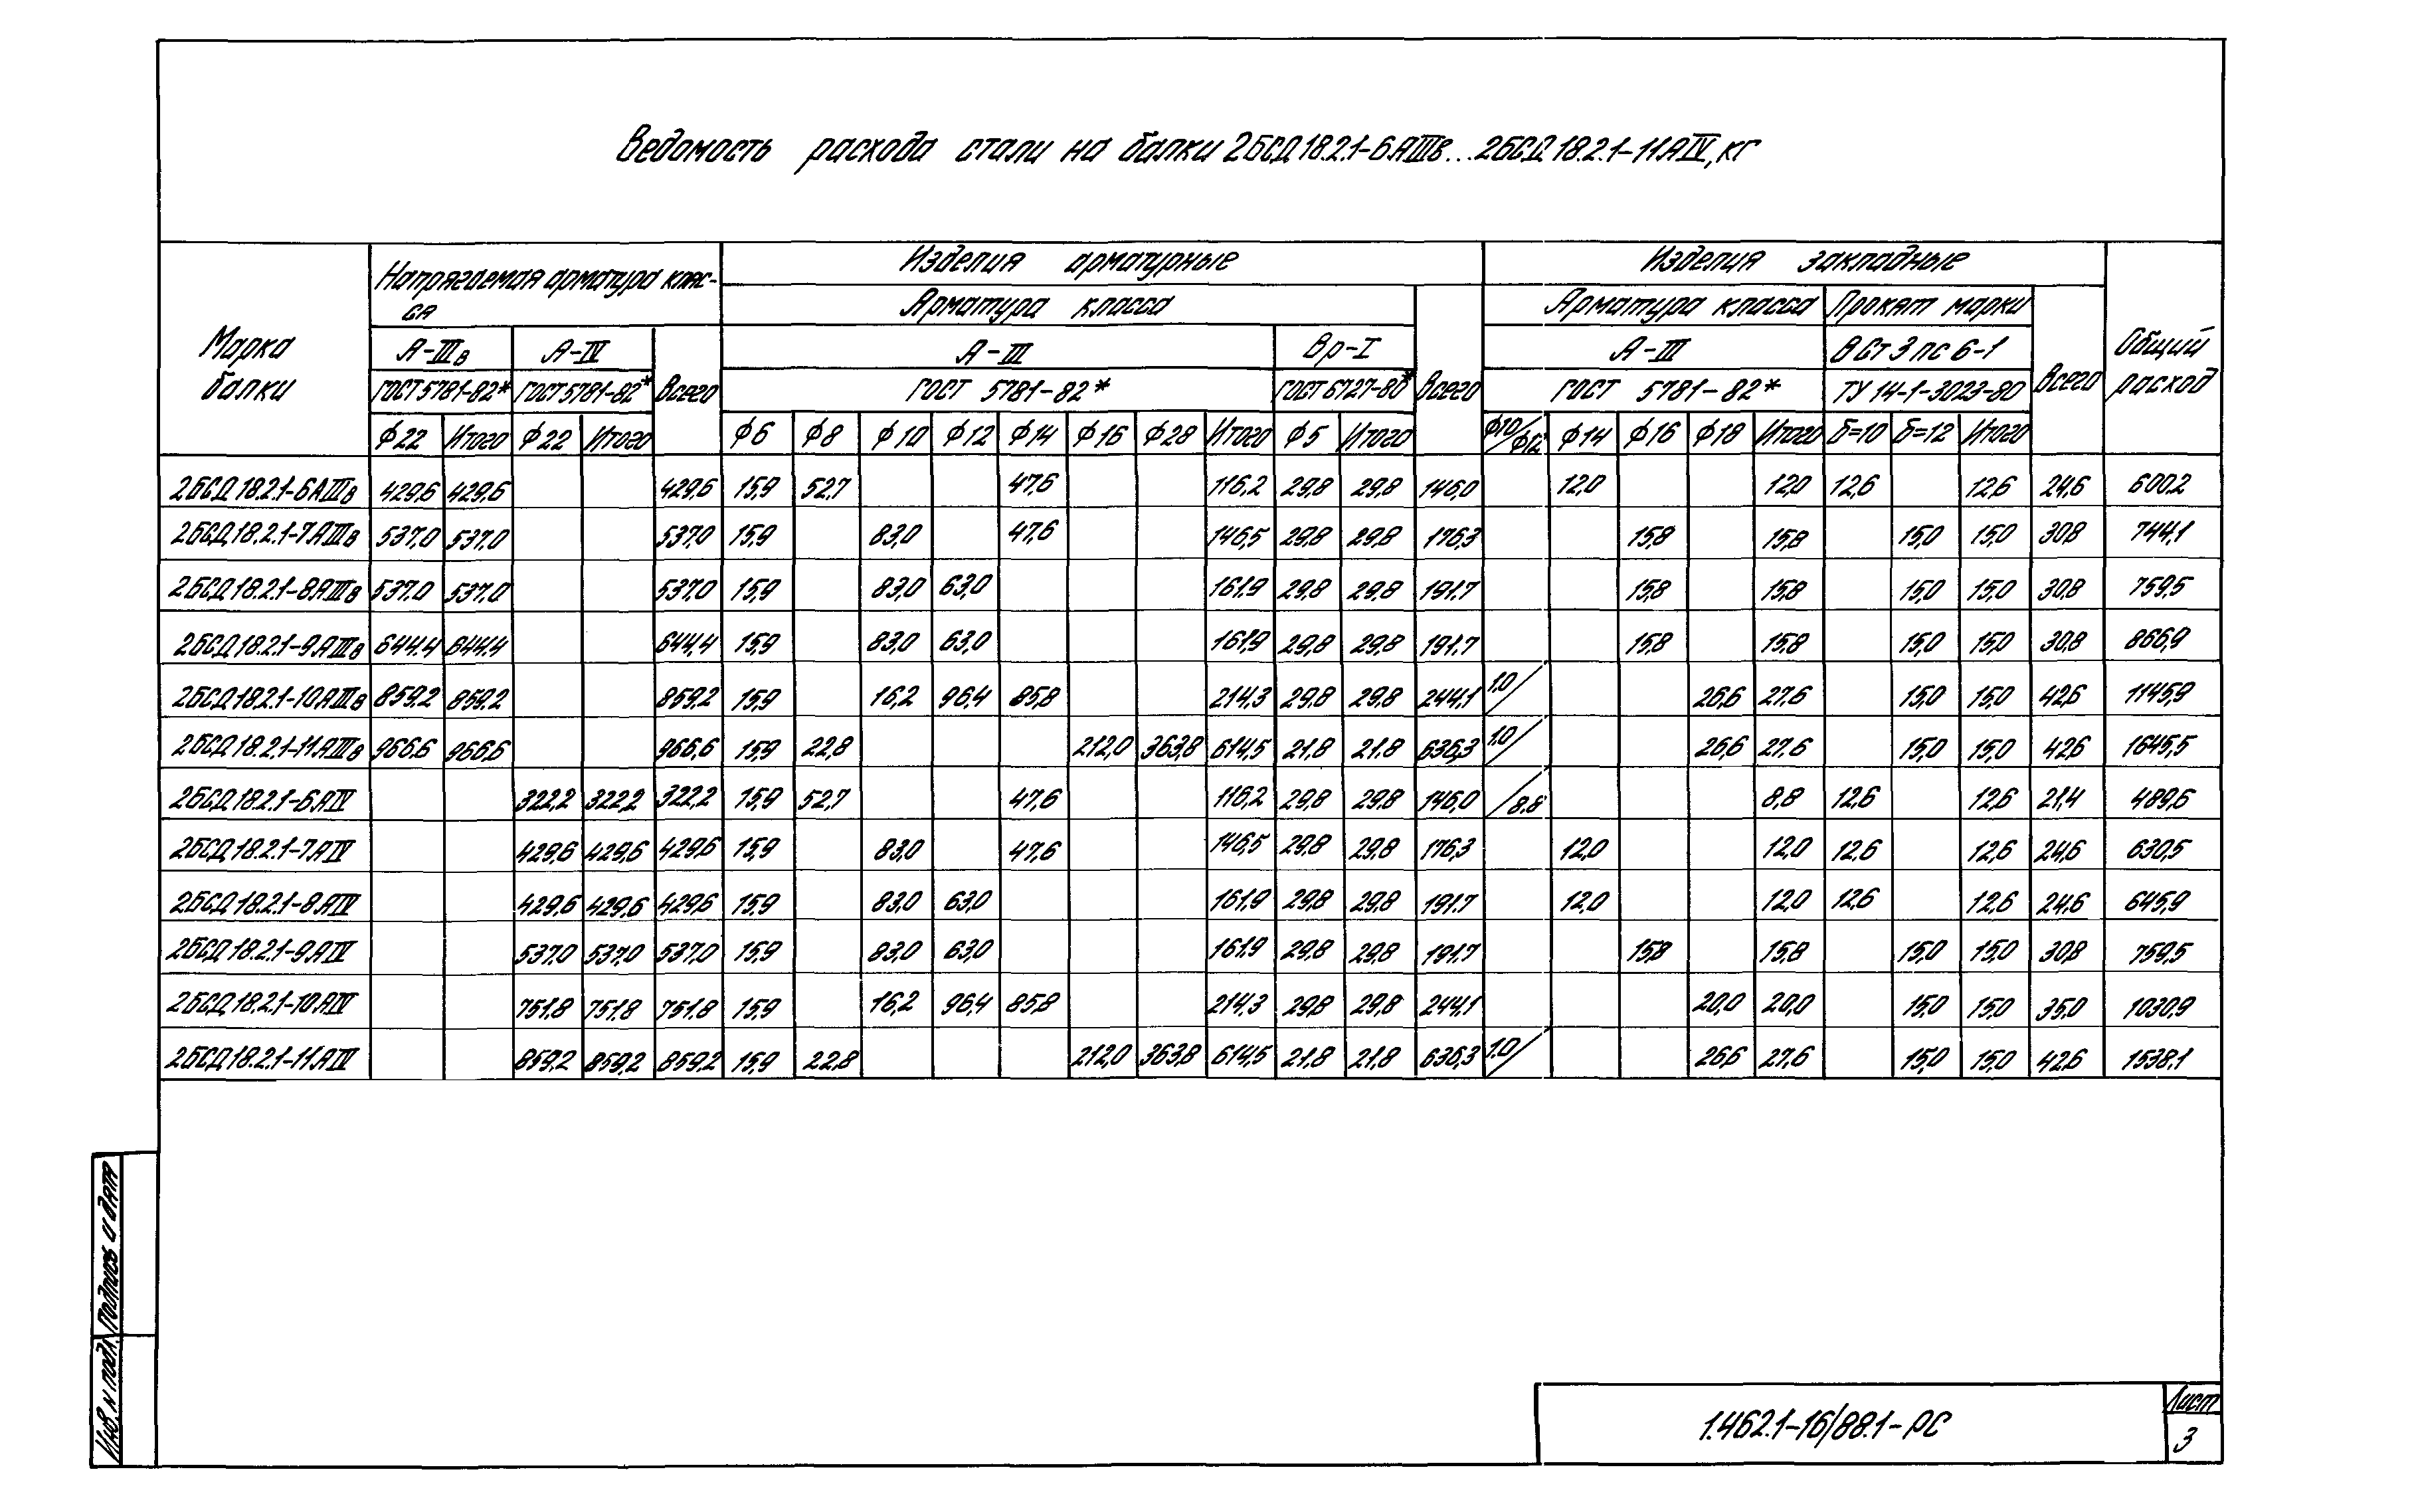 Ведомость расхода стали на балки 2БСД 18.2.1-6АIIIв...2БСД 18.2.1-11АIV, кг
Марка балки
Напрягаемая арматура клас-
са
Изделия арматурные
Изделия закладные
Общий расход
Арматура класса
Арматура класса
Прокат марки
А-IIIв
А-IV
Всего
А-III
Вр-I
Всего
А-III
ВСт3пс6-1
Всего
ГОСТ 5781-82*
ГОСТ 5781-82*
ГОСТ 5781-82*
ГОСТ 6727-80*
ГОСТ 5781-82*
ТУ 14-1-3023-80
ф22 Итого ф22 Итого ф6 ф8 ф10 ф12 ф14 ф16 ф28 Итого ф5 Итого ф10/ф12 ф14 ф16 ф18 Итого б=10 б=12 Итого
2БСД 18.2.1-6АIIIв 429,6 429,6 429,6 15,9 52,7 47,6 116,2 29,8 29,8 146,0 12,0 12,0 12,6 12,6 24,6 600,2
2БСД 18.2.1-7АIIIв 537,0 537,0 537,0 15,9 83,0 47,6 146,5 29,8 29,8 176,3 15,8 15,8 15,0 15,0 30,8 744,1
2БСД 18.2.1-8АIIIв 537,0 537,0 537,0 15,9 83,0 63,0 161,9 29,8 29,8 191,7 15,8 15,8 15,0 15,0 30,8 759,5
2БСД 18.2.1-9АIIIв 644,4 644,4 644,4 15,9 83,0 63,0 161,9 29,8 29,8 191,7 15,8 15,8 15,0 15,0 30,8 866,9
2БСД 18.2.1-10АIIIв 859,2 859,2 859,2 15,9 16,2 96,4 85,8 214,3 29,8 29,8 244,1 1,0/ 26,6 27,6 15,0 15,0 42,6 1145,9
2БСД 18.2.1-11АIIIв 966,6 966,6 966,6 15,9 22,8 212,0 363,8 614,5 21,8 21,8 636,3 1,0/ 26,6 27,6 15,0 15,0 42,6 1645,5
2БСД 18.2.1-6АIV 322,2 322,2 322,2 15,9 52,7 47,6 116,2 29,8 29,8 146,0 /8,8 8,8 12,6 12,6 21,4 489,6
2БСД 18.2.1-7АIV 429,6 429,6 429,6 15,9 83,0 47,6 146,5 29,8 29,8 176,3 12,0 12,0 12,6 12,6 24,6 630,5
2БСД 18.2.1-8АIV 429,6 429,6 429,6 15,9 83,0 63,0 161,9 29,8 29,8 191,7 12,0 12,0 12,6 12,6 24,6 645,9
2БСД 18.2.1-9АIV 537,0 537,0 537,0 15,9 83,0 63,0 161,9 29,8 29,8 191,7 15,8 15,8 15,0 15,0 30,8 759,5
2БСД 18.2.1-10АIV 751,8 751,8 751,8 15,9 16,2 96,4 85,8 214,3 29,8 29,8 244,1 20,0 20,0 15,0 15,0 35,0 1030,9
2БСД 18.2.1-11АIV 859,2 859,2 859,2 15,9 22,8 212,0 363,8 614,5 21,8 21,8 636,3 1,0/ 26,6 27,6 15,0 15,0 42,6 1538,1
Подпись и дата
Инв. N подл.
1.462.1-16/88.1-РС
Лист
3